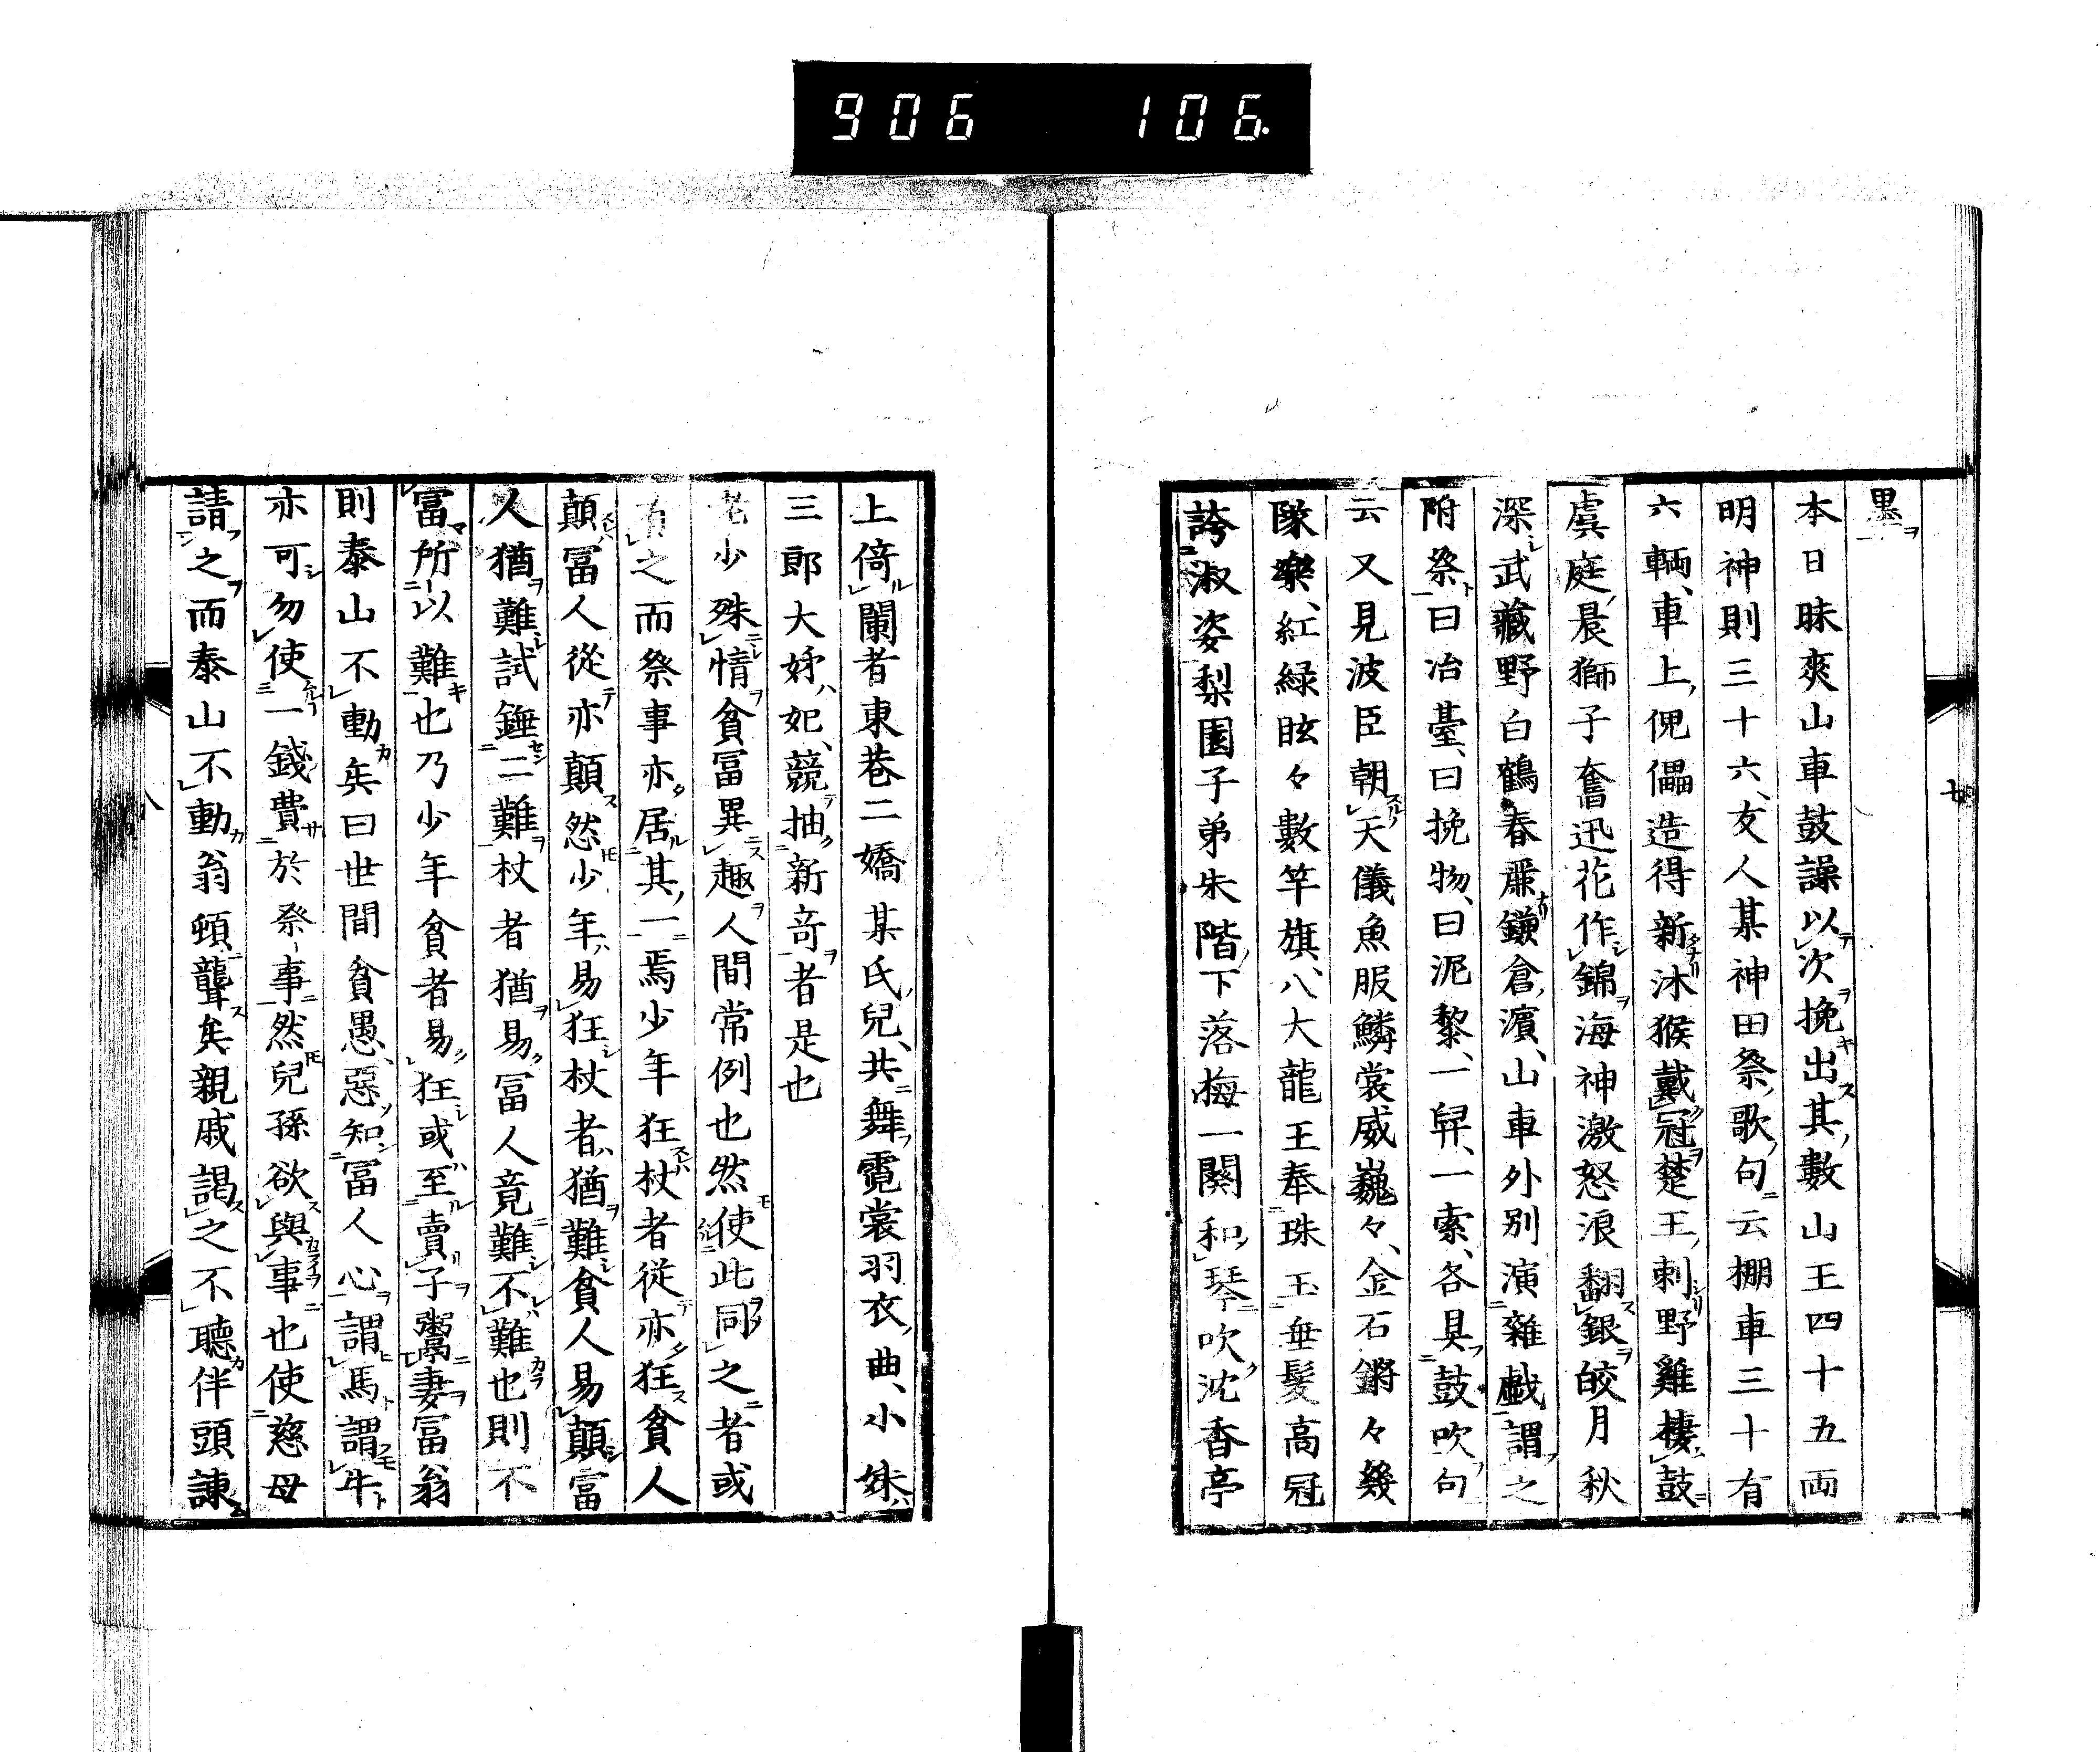 906 106.
墨
本日昧爽山車鼓譟以次挽出其數山王四十五両
明神則三十六友人某神田祭歌句云棚車三十有
六輌車上傀儡造得新沐猴戴冠楚王刺野雞棲鼓
虞庭晨獅子奮迅花作錦海神激怒浪翻銀皎月秋
深武藏野白鶴春肅鎌倉濱山車外別演雜戱謂之
附祭曰冶臺曰挽物曰泥黎一舁一索各具鼓吹句
云又見波臣朝天儀魚服鱗裳威巍々金石鏘々幾
隊樂紅緑眩々數竿旗八大龍王奉珠玉垂髮高冠
誇淑姿梨園子弟朱階下落梅一闋和琴吹沈香亭
上倚闌者東巷二嬌某氏兒共舞霓裳羽衣曲小妹
三郎大姊妃競抽新竒者是也
老少殊情貧冨異趣人間常例也然使此同之者或
有之而祭事亦居其一焉少年狂杖者從亦狂貧人
顛冨人從亦顛然少年易狂杖者猶難貧人易顛富
人猶難試錘二難杖者猶易冨人竟難不難也則不
冨所以難也乃少年貧者易狂或至賣子鬻妻冨翁
則泰山不動矣曰世間貧愚惡知冨人心謂馬謂牛
亦可勿使一錢費於祭事然兒孫欲與事也使慈母
請之而泰山不動翁頓聾矣親戚謁之不聽伴頭諫